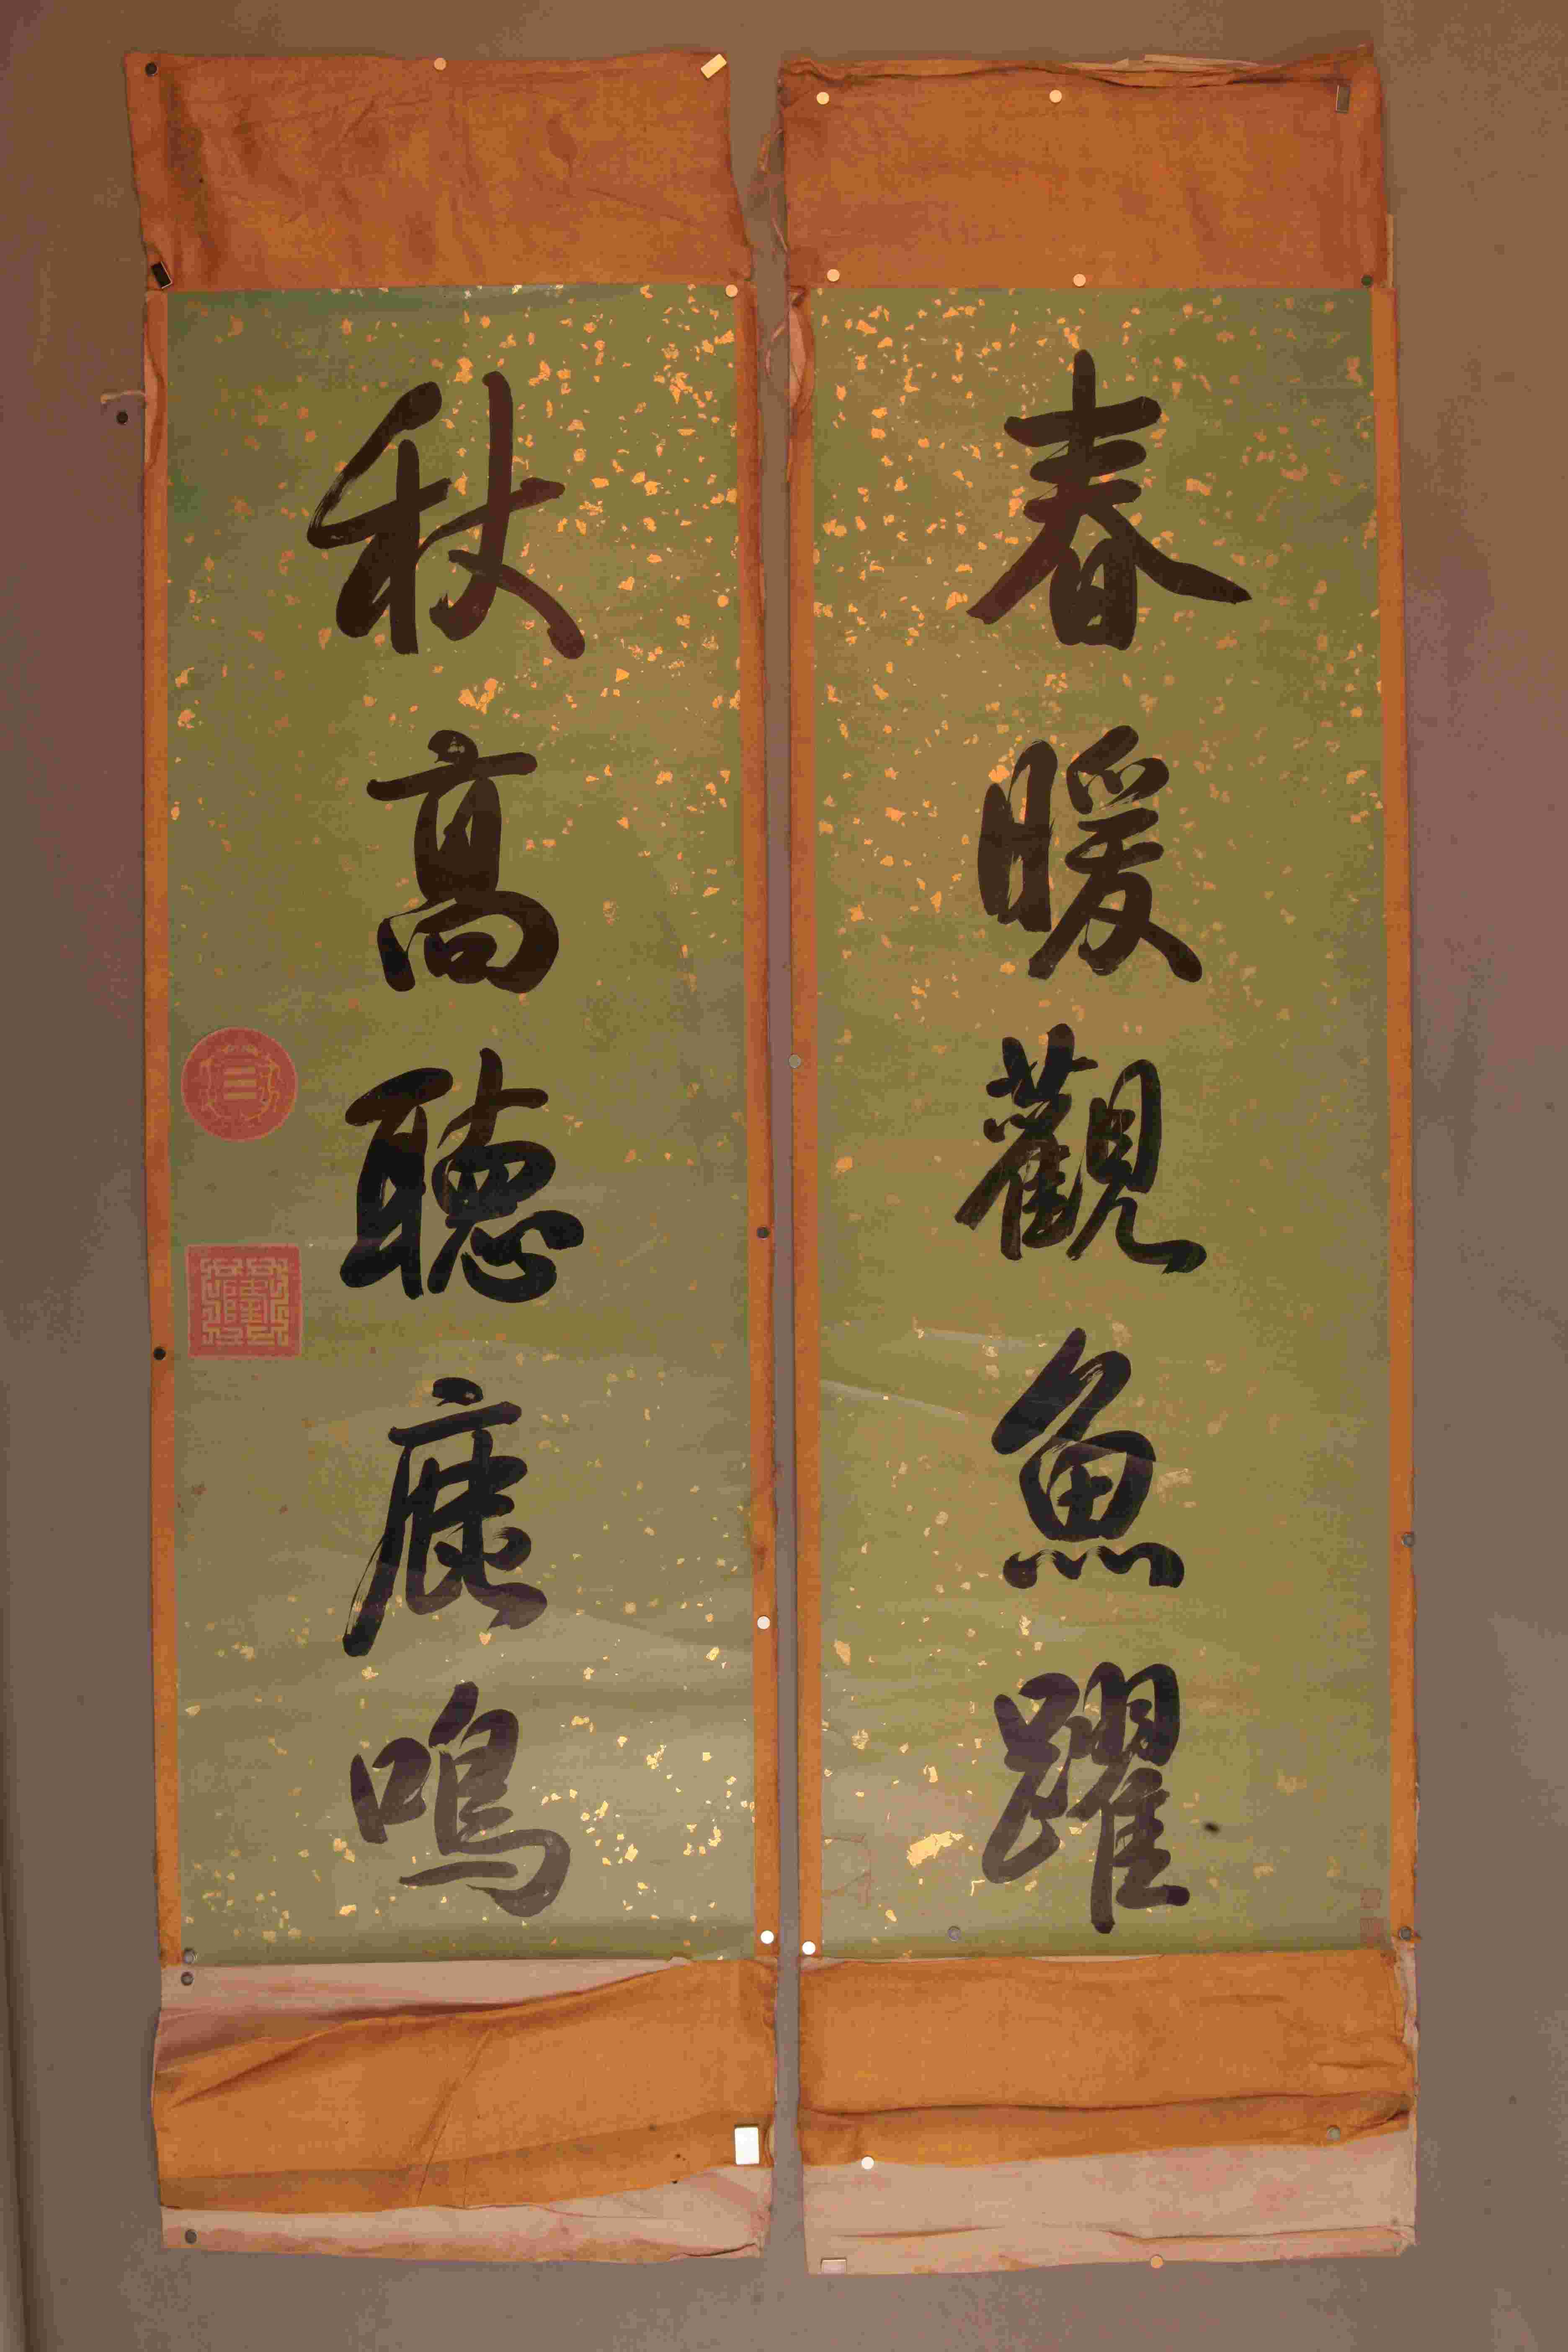 春暖觀魚躍
秋高聽鹿鳴